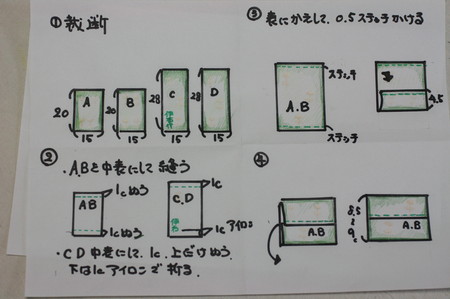 ①裁断
A
B
C
D
20
20
28
28
15
15
15
15
②
・ABを中表にして縫う
1cぬう
AB
1cぬう
1c
C,D
1cアイロン
・CD中表にして、1c、上だけぬう
下は1cアイロンで折る。
③ 表にかえして、0.5ステッチかける
ステッチ
A.B
ステッチ
4.5
④
A.B
8.5
9c
A.B